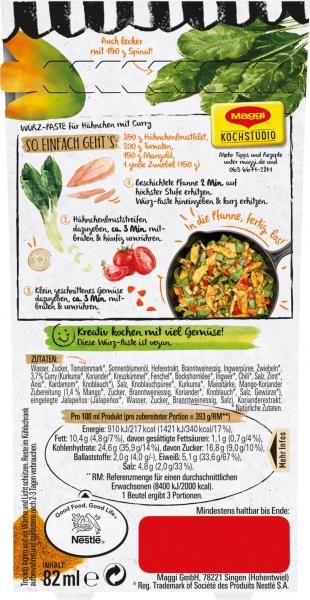 Auch lecker
mit 150 g Spinat!
WÜRZ-PASTE für Hähnchen mit Curry
SO EINFACH GEHT'S:
350 g Hähnchenbrustfilet,
200 g Tomaten,
150 g Mangold,
1 große Zwiebel (150 g)
Maggi
KOCHSTUDIO
Mehr Tipps und Rezepte
unter maggi.de und
069 6671-2841
1. Beschichtete Pfanne 2 Min. auf
höchster Stufe erhitzen.
Würz-Paste hineingeben & kurz erhitzen.
2. Hähnchenbruststreifen
dazugeben, ca. 3 Min. mit-
braten & häufig umrühren.
In die Pfanne, fertig, los!
3. Klein geschnittenes Gemüse
dazugeben, ca. 3 Min. mit-
braten & umrühren.
Kreativ kochen mit viel Gemüse!
Diese Würz-Paste ist vegan.
ZUTATEN:
Wasser, Zucker, Tomatenmark*, Sonnenblumenöl, Hefeextrakt, Branntweinessig, Ingwerpüree, Zwiebeln*,
3,7% Curry (Kurkuma*, Koriander*, Kreuzkümmel*, Fenchel*, Bockshornklee*, Ingwer*, Chili*, Salz, Zimt*,
Anis*, Kardamom*, Knoblauch*), Salz, Knoblauchpüree*, Kurkuma*, Maisstärke, Mango-Koriander
Zubereitung (1,4 % Mango*, Zucker, Branntweinessig, Koriander*, Knoblauch*, Salz, Gewürze*),
eingelegte Jalapeños* (Jalapeños*, Wasser, Zucker, Branntweinessig, Salz), Korianderextrakt.
*Natürliche Zutaten.
Pro 100 ml Produkt (pro zubereiteter Portion = 393 g/RM**)
Energie: 910 kJ/217 kcal (1421 kJ/340 kcal/17%)
Fett: 10,4 g (4,8 g/7%), davon gesättigte Fettsäuren: 1,1 g (0,7 g/4%),
Kohlenhydrate: 24,6 g (35,9 g/14%), davon Zucker: 16,8 g (9,0 g/10%),
Ballaststoffe: 2,0 g (4,0 g/-), Eiweiß: 5,1 g (33,6 g/67%),
Salz: 4,8 g (2,0 g/33%).
**RM: Referenzmenge für einen durchschnittlichen
Erwachsenen (8400 kJ/2000 kcal).
1 Beutel ergibt 3 Portionen.
Mehr Infos
Trocken lagern und vor Wärme und Licht schützen. Reste im Kühlschrank
aufbewahren und spätestens nach 2-3 Tagen verbrauchen.
Good Food, Good Life
Nestlé®
Mindestens haltbar bis Ende:
INHALT:
82 ml e
Maggi GmbH, 78221 Singen (Hohentwiel)
® Reg. Trademark of Société des Produits Nestlé S.A.